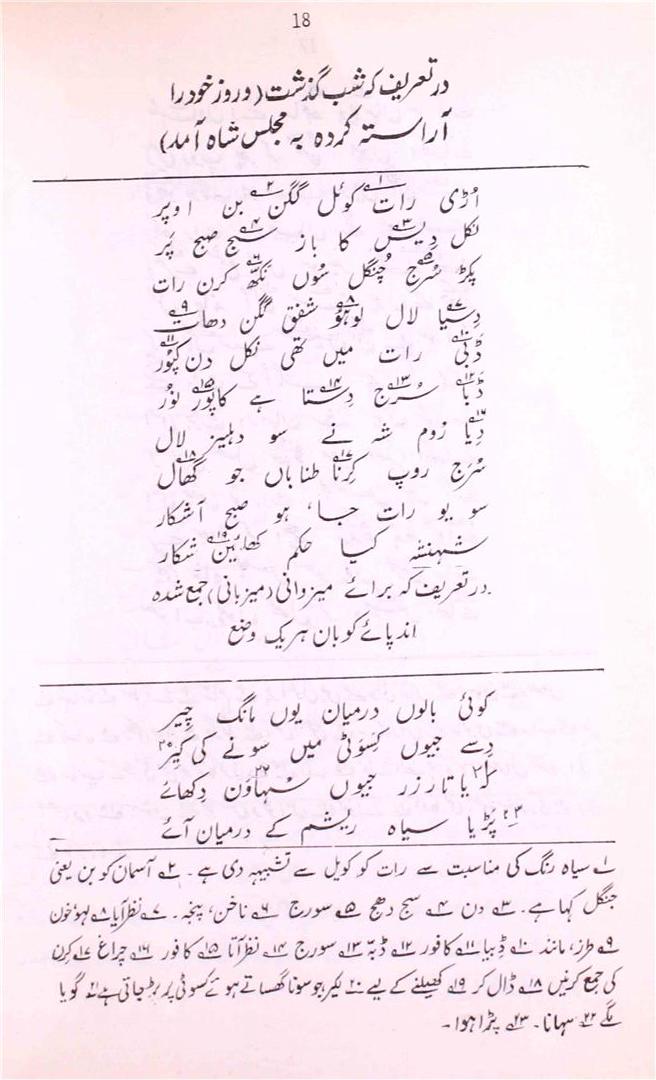 18
در تعریف کہ شب گذشت (و روز خود را
آراستہ کردہ بہ مجلس شاہ آمد)
اُڑی رات۱؎ کوئل گگن۲؎ بن اوپر
نکل دیس۳؎ کا باز سج۴؎ صبح پَر
پکڑ سُرج۵؎ چُنگل سُوں نکھ۶؎ کرن رات
دِسیا۷؎ لال لوہُو۸؎ شفق گگن دھات۹؎
ڈَبّی۱۰؎ رات میں تھی نکل دن کپُور۱۱؎
ڈَبا۱۲؎ سُرج۱۳؎ دِستا۱۴؎ ہے کاپُور۱۵؎ نُور
دِیا۱۶؎ زوم شہ نے سو دہلیز لال
سُرج روپ کِرنا۱۷؎ طناباں جو گھال۱۸؎
سو یو رات جا، ہو صبح آشکار
شہنشہ کیا حکم کھلئیں۱۹؎ شکار
در تعریف کہ برائے میزوانی (میزبانی) جمع شدہ
اند پائے کوبان ہر یک وضع
کوئی بالوں درمیان یوں مانگ چِیر
دِسے جیوں کِسَوٹی میں سونے کی گِیر۲۰؎
کہ یا تار۲۱؎ زر جیوں سہاون۲۲؎ دکھائے
پَڑیا۲۳؎ سیاہ ریشم کے درمیان آئے
۱؎ سیاہ رنگ کی مناسبت سے رات کو کویل سے تشبیہہ دی ہے۔ ۲؎ آسمان کو بن یعنی
جنگل کہا ہے۔ ۳؎ دن ۴؎ سج دھج ۵؎ سورج ۶؎ ناخن، پنجہ۔ ۷؎ نظر آیا ۸؎ لہو، خون
۹؎ طرز، مانند ۱۰؎ ڈبیا ۱۱؎ کافور ۱۲؎ ڈبّہ ۱۳؎ سورج ۱۴؎ نظر آتا ۱۵؎ کافور ۱۶؎ چراغ ۱۷؎ کرن
کی جمع کرنیں ۱۸؎ ڈال کر ۱۹؎ کھیلنے کے لیے ۲۰؎ لکیر، جو سونا گھساتے ہوئے کسوٹی پر پڑ جاتی ہے ۲۱؎ گویا
لگے ۲۲؎ سہانا۔ ۲۳؎ پڑا ہوا۔